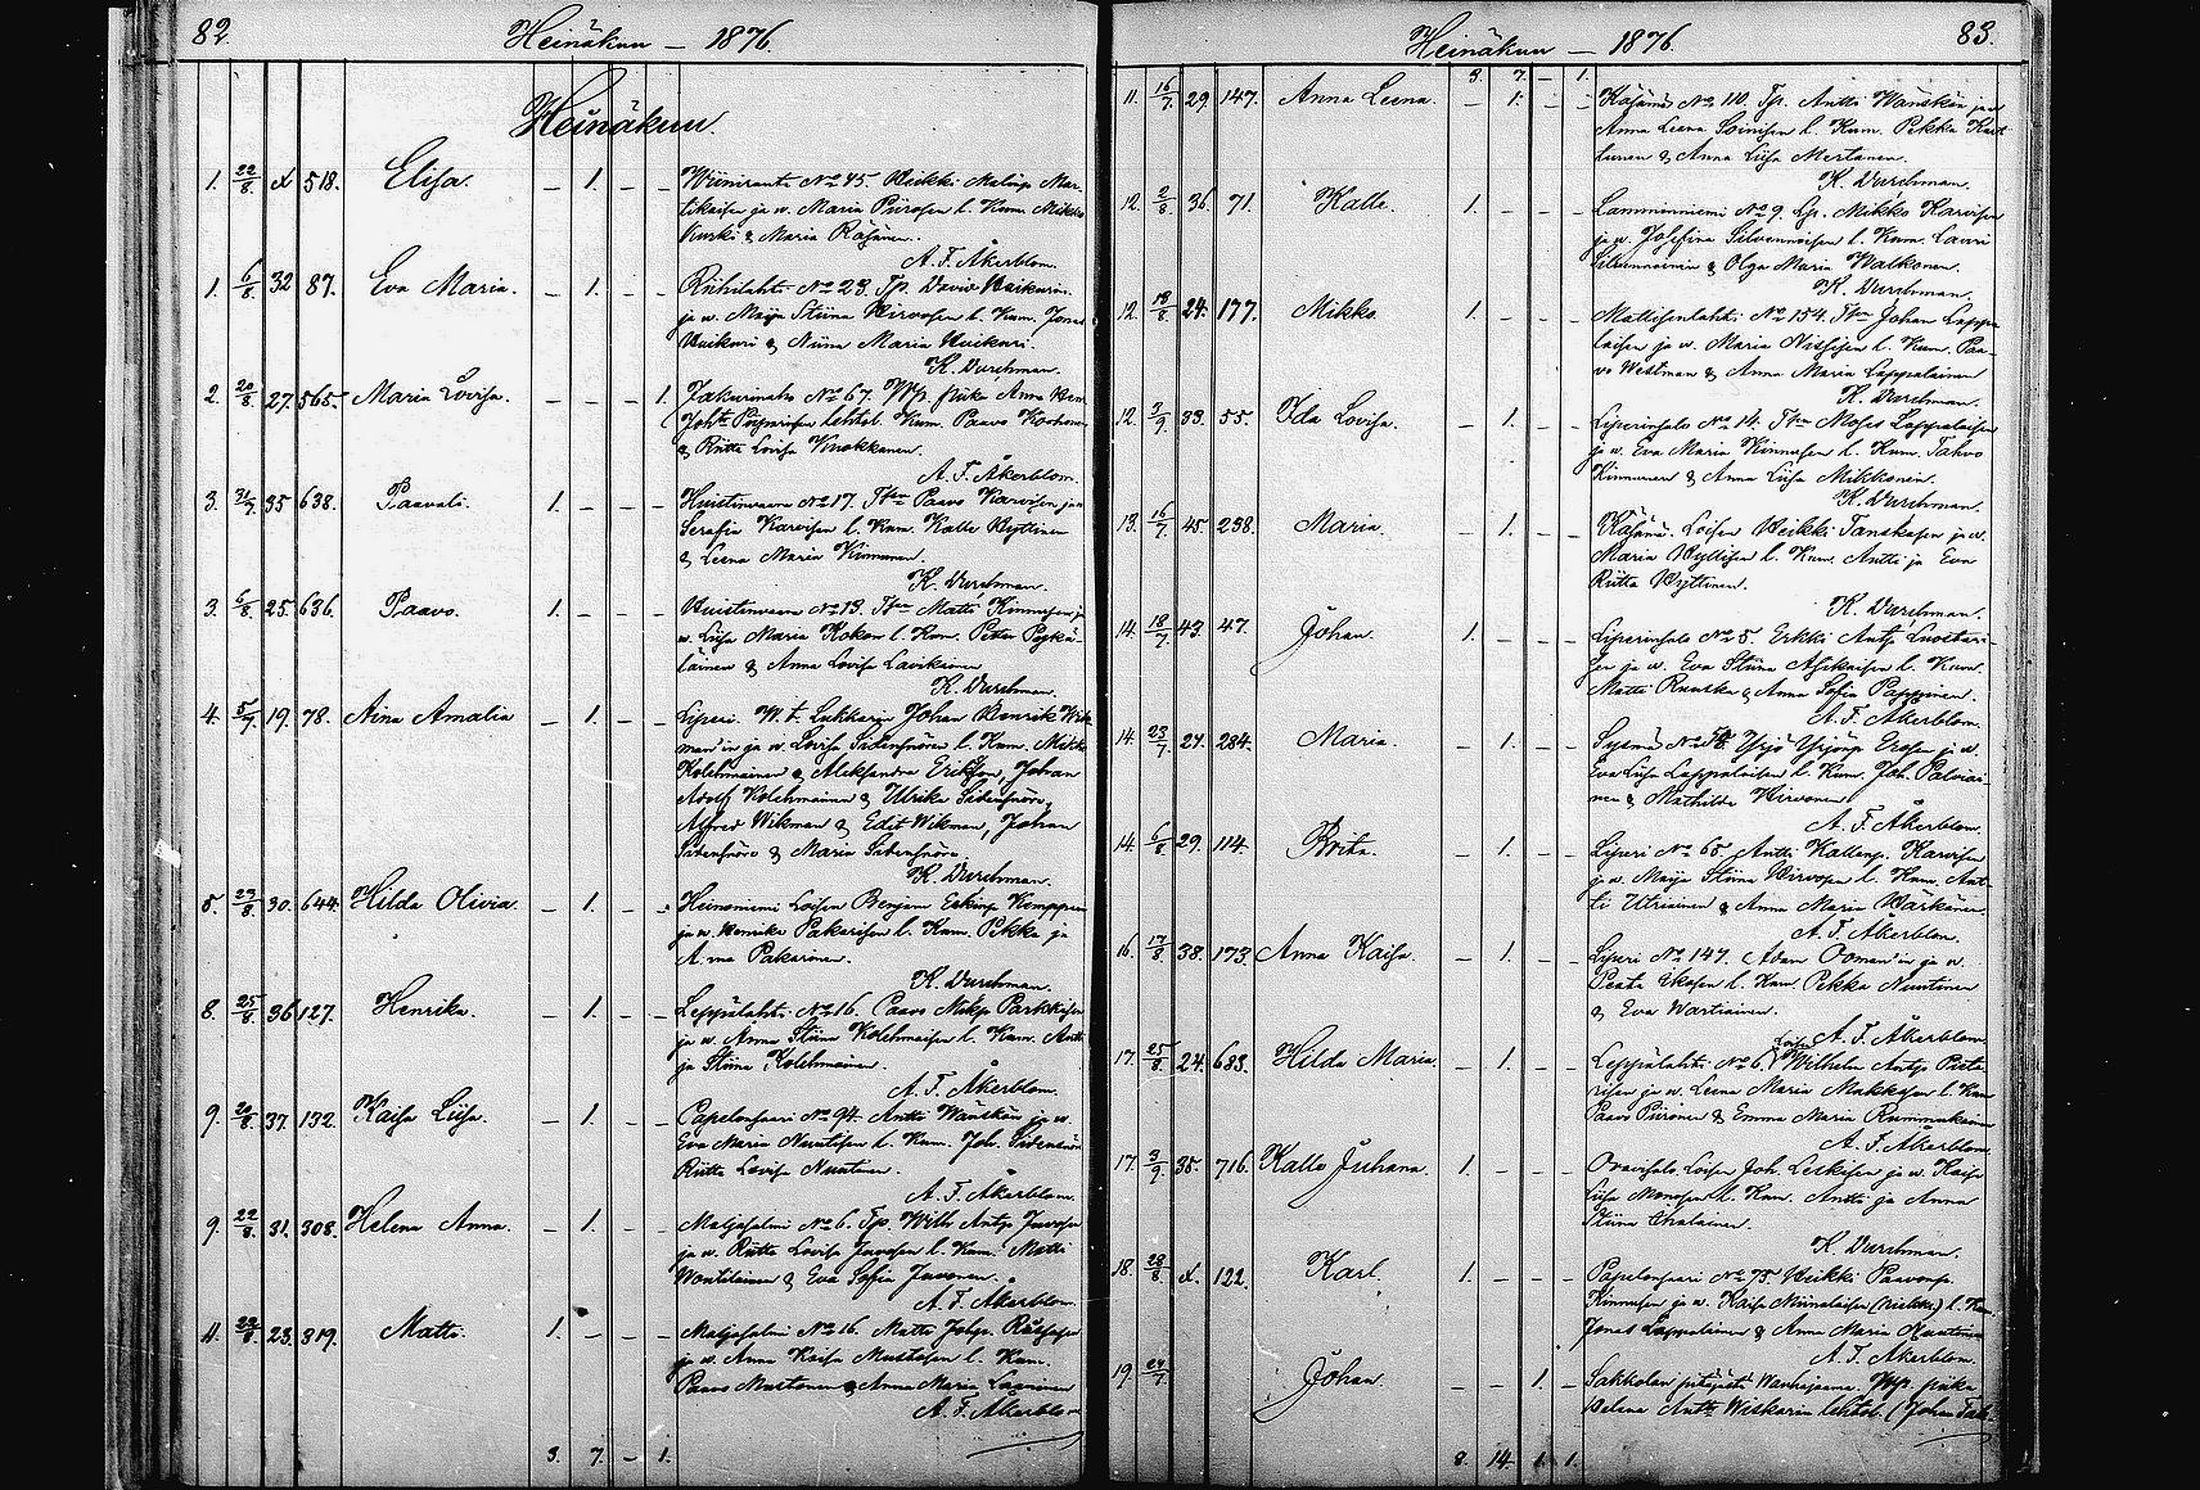 82. Heinäkuu — 1876.
Heinäkuu.
1. 22/8. 518. Elisa. — 1. — — Wiiniranta No 45. Heikki
ja w. Maria Piirosen l. Kum. Mikko
Kurki & Maria Räsänen.
A. F. Åkerblom.
1. 6/8. 32 87. Eva Maria. — 1. — — Riihilahti No 23. Tp. David Huikurin
ja w. Maija Stiina Hirvosen l. Kum. Jonas
Huikuri & Niina Maria Huikuri.
K. Durchman.
2. 20/8. 27. 565. Maria Lovisa. — — — 1. No 67. piika Anna
lehtol. Kum. Paavo
& Riitta Lovisa Knokkanen.
A. F. Åkerblom.
3. 31/7. 35 638. Paavali. 1. — — — No 17. Paavo Karvisen ja w.
Serafia Karvisen l. Kum. Kalle Hyttinen
& Leena Maria Kinnunen.
K. Durchman.
3. 6/8. 25. 636. Paavo. 1. — — — No 13. Matti Kinnusen ja
w. Liisa Maria Kokon l. Kum. Petter Pöykä-
läinen & Anna Lovisa Lavikainen
K. Durchman.
4. 5/7. 19. 78. Aina Amalia — 1. — — Liperi. W. t. Lukkarin Johan Henrik Wik-
man'in ja w. Lovisa Sidensnören l. Kum. Mikko
Kolehmainen & Aleksandra Erikson, Johan
Adolf Kolehmainen & Ulrika Sidensnöre,
Alfred Wikman & Edit Wikman, Johan
Sidensnöre & Maria Sidensnöre.
K. Durchman.
5. 27/8. 30. 644. Hilda Olivia. — 1. — — Heinoniemi Loisen Benjam Kemppisen
ja w. Henrika Pakarisen l. Kum. Pekka ja
Anna Pakarinen.
K. Durchman.
8. 25/8. 36 127. Henrika. — 1. — — Leppälahti No 16. Paavo Mikp. Parkkisen
ja w. Anna Stiina Kolehmaisen l. Kum. Antti
ja Stiina Kolehmainen.
A. F. Åkerblom.
9. 20/8. 37. 132. Kaisa Liisa. — 1. — — Papelonsaari No 94. Antti Wänskän ja w.
Eva Maria Nuutisen l. Kum. Joh. Sidensnöre
Riitta Lovisa Nuutinen.
A. F. Åkerblom.
9. 22/8. 31. 308. Helena Anna. — 1. — — Maljasalmi No 6. Tp. Wilh. Antp. Juvosen
ja w. Riitta Lovisa Juvosen l. Kum. Matti
Wontilainen & Eva Sofia Juvonen.
A. F. Åkerblom.
11. 22/8. 23. 319. Matti. 1. — — — Maljasalmi No 16. Matti Johp.
ja w. Anna Kaisa Mustosen l. Kum.
Paavo Mustonen & Anna Maria
A. F. Åkerblom
3. 7. — 1.
Heinäkuu — 1876. 83.
3. 7. — 1.
11. 16/7. 29. 147. Anna Leena. — 1. — — Käsämä No 110. Tp. Antti Wänskän ja w
Anna Leena Soinisen l. Kum. Pekka Kart-
tunen & Anna Liisa Mertanen.
K. Durchman.
12. 2/8. 36. 71. Kalle. 1. — — — Lamminniemi No 9. Lp. Mikko Karvisen
ja w. Josefina Silvennoisen l. Kum. Lauri
Silvennoinen & Olga Maria Walkonen.
K. Durchman.
12. 13/8. 24. 177. Mikko. 1. — — — Mattisenlahti No 154. Johan Lappa-
laisen ja w. Maria Nissisen l. Kum. Paa-
vo Westman & Anna Maria Lappalainen
K. Durchman.
12. 3/9. 33. 55. Ida Lovisa. — 1. — — Liperinsalo No 14. Moses Lappalaisen
ja w. Eva Maria Kinnusen l. Kum. Tahvo
Kinnunen & Anna Liisa Mikkonen.
K. Durchman.
13. 16/7. 45. 238. Maria. — 1. — — Käsämä. Loisen Heikki Tanskasen ja w.
Maria Hyttisen l. Kum. Antti ja Eva
Riitta Hyttinen.
K. Durchman.
14. 18/7. 43. 47. Johan. 1. — — — Liperinsalo No 5. Erkki Antp. Luostari-
sen ja w. Eva Stiina Asikaisen l. Kum.
Matti Ruuska & Anna Sofia Pappinen.
A. F. Åkerblom.
14. 23/7. 27. 284. Maria. — 1. — — Sysmä No Yrjö Yrjönp. Erosen ja w.
Eva Liisa Lappalaisen l. Kum. Joh. Palviai-
nen & Mathilda Hirvonen
A. F. Åkerblom.
14. 6/8. 29. 114. Brita. — 1. — — Liperi No 65. Antti Kallenp. Karvisen
ja w. Maija Stiina Hirvosen l. Kum. Ant-
ti Utriainen & Anna Maria Härkänen.
A. F. Åkerblom.
16. 17/8. 38. 173. Anna Kaisa. — 1. — — Liperi No 147. Adam Öoman'in ja w.
Peata Ikosen l. Kum. Pekka Nuutinen
& Eva Wartiainen.
A. F. Åkerblom.
17. 25/8. 24. 683. Hilda Maria. — 1. — — Leppälahti No 6. Loisen Wilhelm Antp. Pieta-
risen ja w. Leena Maria Makkosen l. Kum
Paavo Piironen & Emma Maria Rummukainen
A. F. Åkerblom.
17. 3/9. 35. 716. Kalle Juhana. 1. — — — Oravisalo. Loisen Joh. Leskisen ja w. Kaisa
Liisa Monosen l. Kum. Antti ja Anna
Stiina
K. Durchman.
18. 28/8. 122. Karl. 1. — — — Papelonsaari No 75. Heikki Paavonp.
Kinnusen ja w. Kaisa Miinalaisen l. Kum.
Jonas Lappalainen & Anna Maria Nuutinen
A. F. Åkerblom.
19. 24/7. Johan. — — 1. — Sakkolan pitäjästä piika
Helena Antt. Wiskarin lehtol. (Johan
8. 14. 1. 1.